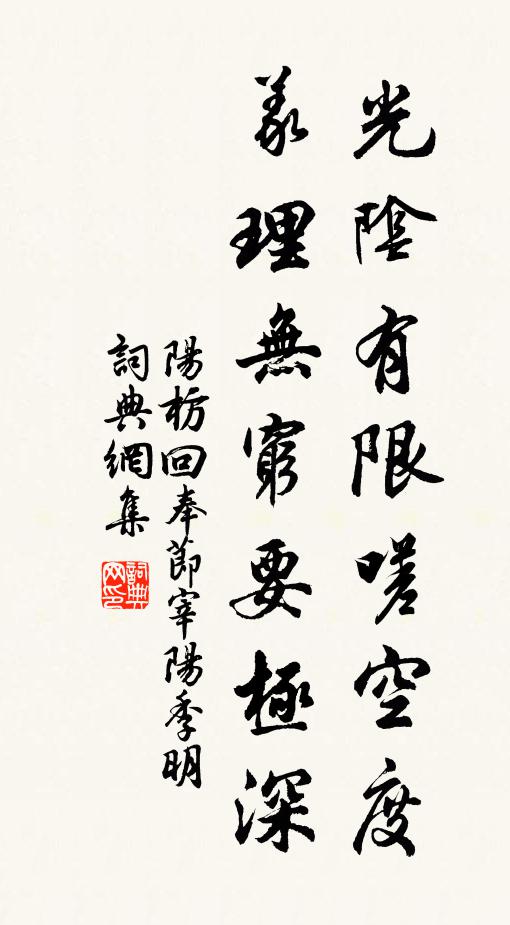 光陰有限嗟空度
義理無窮要極深
陽枋回奉節宰陽季明
詞典網集
詞典网印